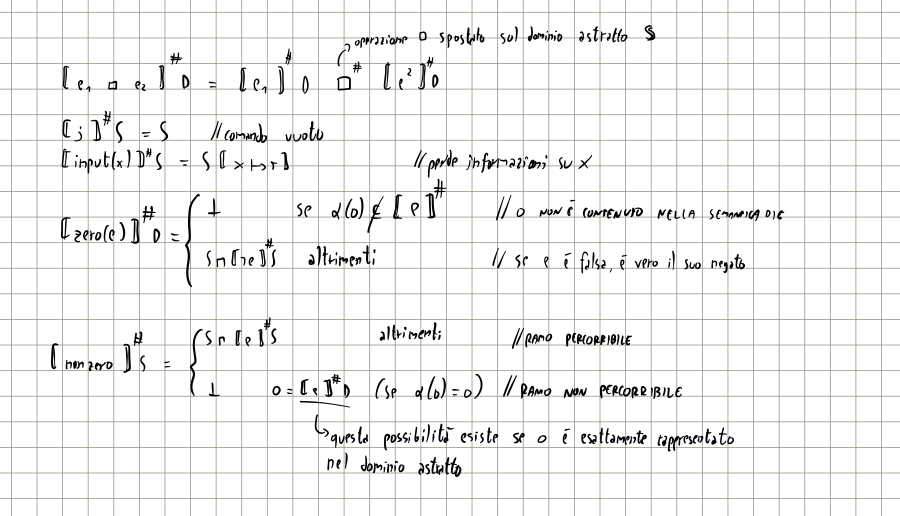 operazione □ spostato sul dominio astratto S
⟦e₁ □ e₂⟧# D = ⟦e₁⟧# D □# ⟦e²⟧# D
⟦;⟧# S = S //comando vuoto
⟦input(x)⟧# S = S[x ↦ T] //perde informazioni su x
⟦zero(e)⟧# D = { ⊥ se α(0) ⊄ ⟦e⟧# // 0 NON È CONTENUTO NELLA SEMANTICA DI E
S ⊓ ⟦¬e⟧# S altrimenti // se e è falsa, è vero il suo negato
⟦nonzero⟧# S = { S ⊓ ⟦e⟧# S altrimenti //RAMO PERCORRIBILE
⊥ 0 = ⟦e⟧# D (se α(0) = 0) // RAMO NON PERCORRIBILE
↳ questa possibilità esiste se 0 è esattamente rappresentato
nel dominio astratto